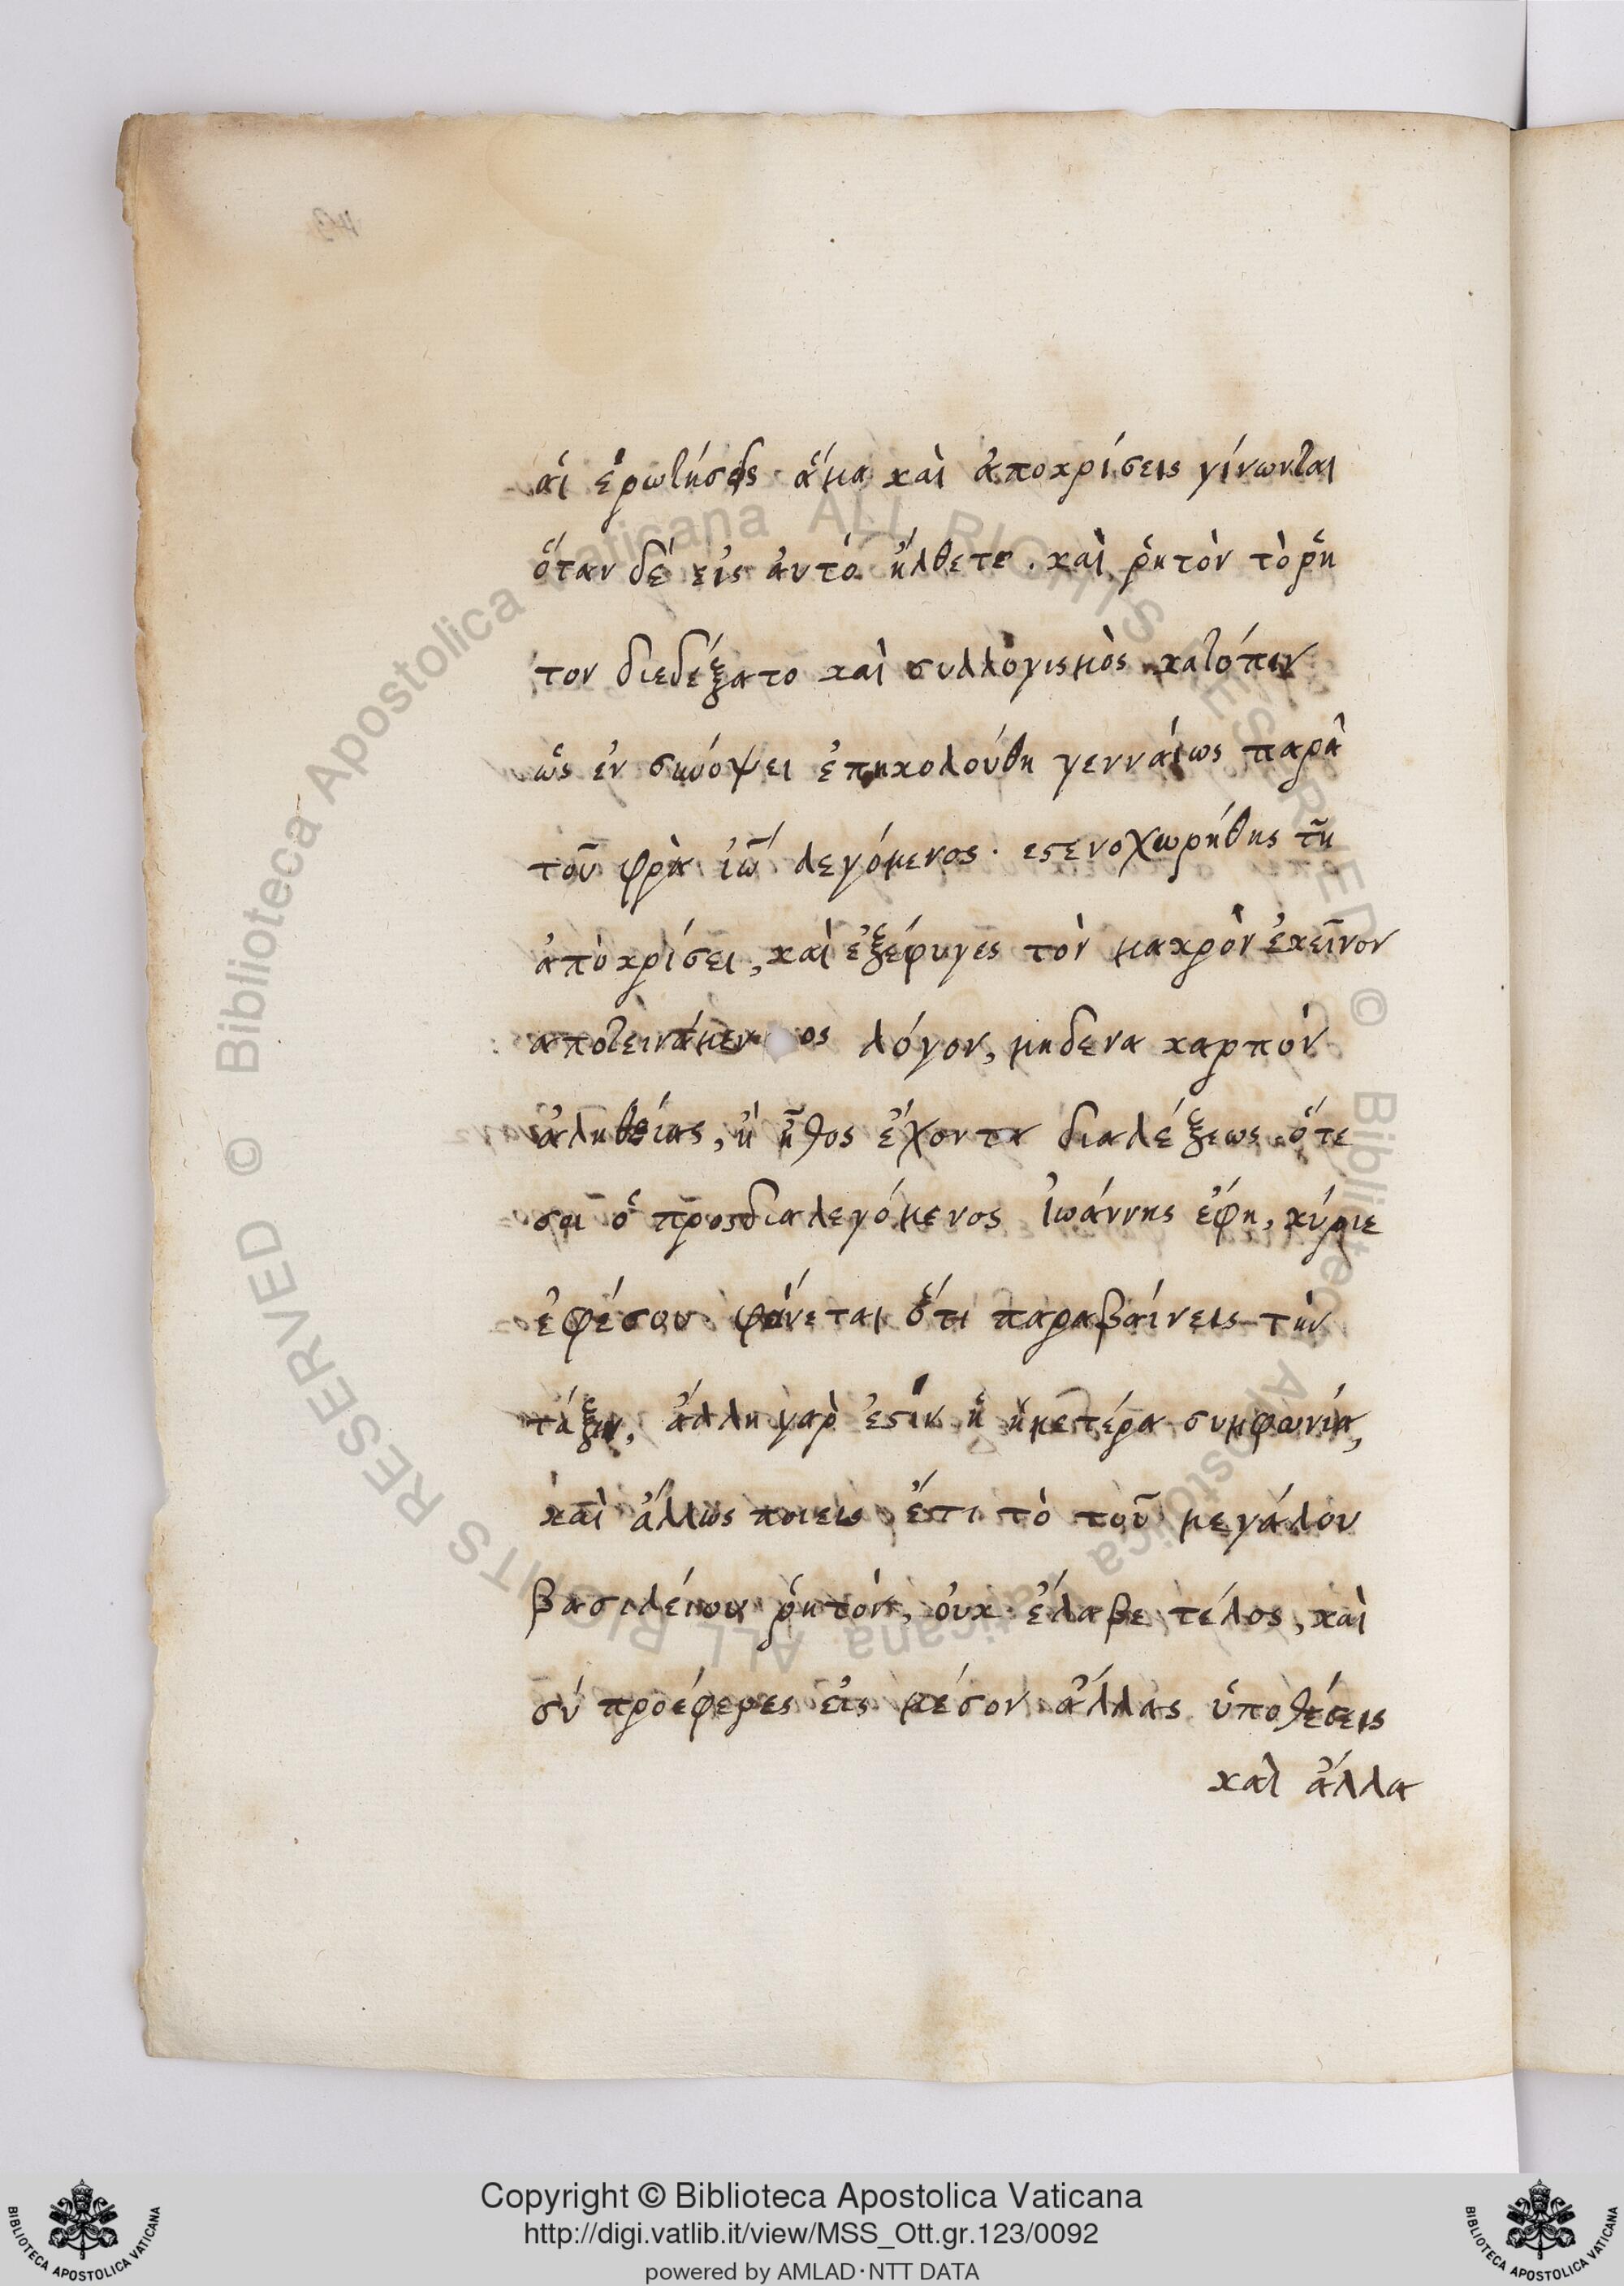 αἱ ἐρωτήσεις ἅμα καὶ ἀποκρίσεις γίνωνται
ὅταν δέ εἰς ἀυτό ἤλθετε . καὶ ῥητὸν τὸ ῥη
τον διεδέξατο καὶ συλλογισμὸς κατόπιν
ὡς ἐν συνόψει ἐπηκολούθη γενναίως παρὰ
τοῦ φρὰ ἰω λεγόμενος · εστενοχωρήθης τῆ
ἀποκρίσει, καὶ ἐξέφυγες τὸν μακρὸν ἐκεῖνον
αποτεινάμενος λόγον, μηδενα καρπὸν
ἀληθείας, ἢ ἦθος ἔχοντα διαλέξεως ὅτε
σοι ὁ προσδιαλεγόμενος Ἰωάννης ἔφη, κύριε
ἐφέσου φαίνεται ὅτι παραβαίνεις τὴν
τάξιν, ἄλλη γαρ ἐστιν ἡ ἡμετέρα συμφωνία,
καὶ ἄλλως ποιεις ἔτι τὸ τοῦ μεγάλου
βασιλείου ῥητὸν, ὀυκ ἔλαβε τέλος, καὶ
σύ προέφερες εἰς μέσον ἄλλας ὑποθέσεις
καὶ ἄλλα
Copyright © Biblioteca Apostolica Vaticana
http://digi.vatlib.it/view/MSS_Ott.gr.123/0092
powered by AMLAD·NTT DATA
BIBLIOTECA APOSTOLICA VATICANA
BIBLIOTECA APOSTOLICA VATICANA
© Biblioteca Apostolica Vaticana ALL RIGHTS RESERVED © Biblioteca Apostolica Vaticana ALL RIGHTS RESERVED